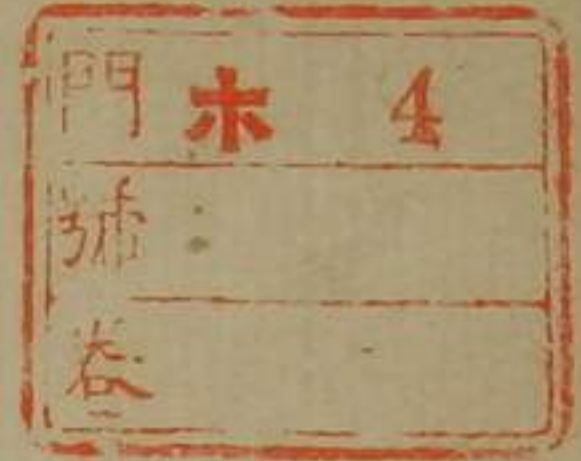 門 ホ 4
號
卷